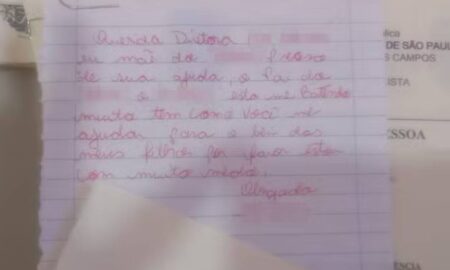 Querida Diretora
eu mãe do preciso
de sua ajuda, o Pai da
e está me Batendo
muito tem como você me
ajudar para o bem dos
meus filhos por favor estou
com muito medo.
Obrigada
DE SÃO PAUL
S CAMPOS
ISTA
ESSOA